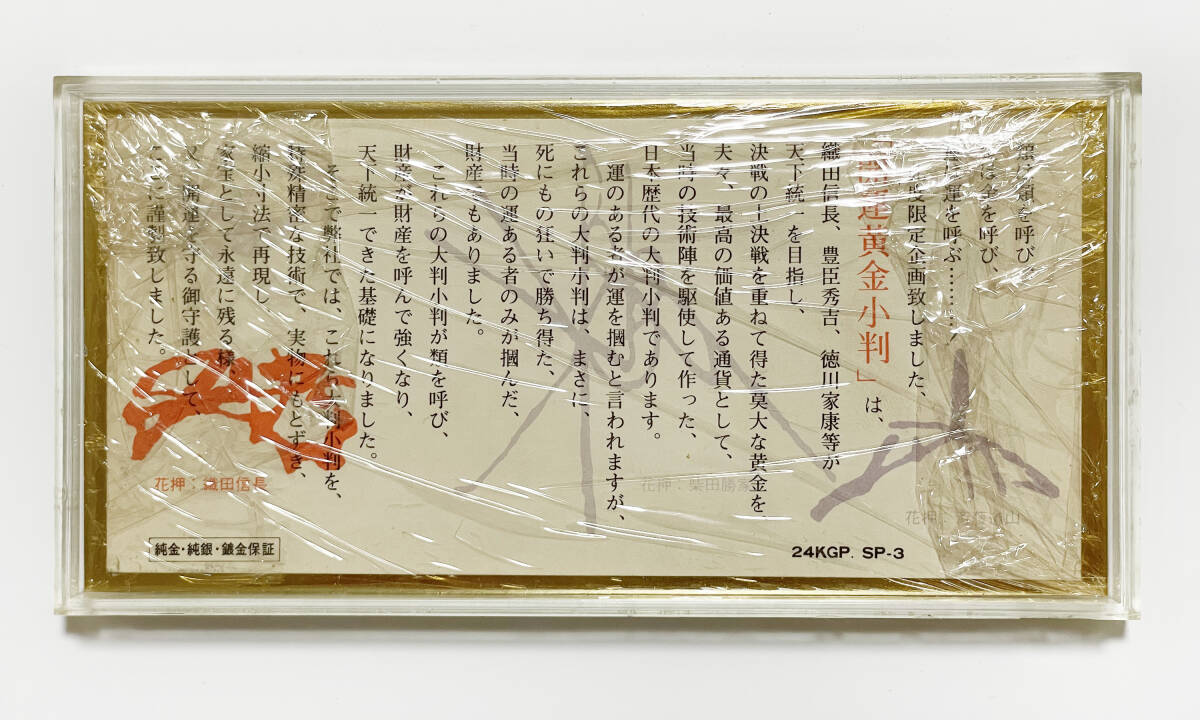 類は類を呼び、
金は金を呼び、
運は運を呼ぶ………！
度限定企画致しました、
「開運黄金小判」は、
織田信長、豊臣秀吉、徳川家康等が
天下統一を目指し、
決戦の上決戦を重ねて得た莫大な黄金を
夫々、最高の価値ある通貨として、
当時の技術陣を駆使して作った、
日本歴代の大判小判であります。
運のある者が運を摑むと言われますが、
これらの大判小判は、まさに、
死にもの狂いで勝ち得た、
当時の運ある者のみが摑んだ、
財産でもありました。
これらの大判小判が類を呼び、
財産が財産を呼んで強くなり、
天下統一できた基礎になりました。
そこで弊社では、これら大判小判を、
特殊精密な技術で、実物にもとずき、
縮小寸法で再現し、
家宝として永遠に残る様、
又、開運を守る御守護として、
ここに謹製致しました。
花押：織田信長
花押：柴田勝家
花押：
純金・純銀・鍍金保証
24KGP. SP-3